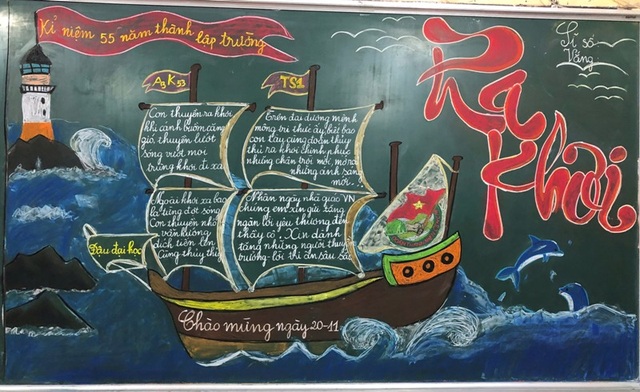 Kỉ niệm 55 năm thành lập trường
Sĩ số
Vắng
Ra
Khơi
A3 K53
TS1
Con thuyền ra khơi
khi cánh buồm căng
gió, thuyền lướt
sóng vượt mọi
trùng khơi đi xa
Trên đại dương mênh
mông tri thức ấy biết bao
con tay cùng đoàn thủy
thủ ra khơi chinh phục
những chân trời mới, mở ra
những ánh sáng
mới
Ngoài khơi xa bao
la từng đợt sóng
Con thuyền nhỏ
vẫn hướng
đích tiến lên
cùng thủy thủ
Nhân ngày nhà giáo VN
chúng em xin gửi tặng
ngàn lời yêu thương đến
thầy cô. Xin dành
tặng những người thuyền
trưởng lời tri ân sâu sắc
Đậu đại học
Chào mừng ngày 20-11